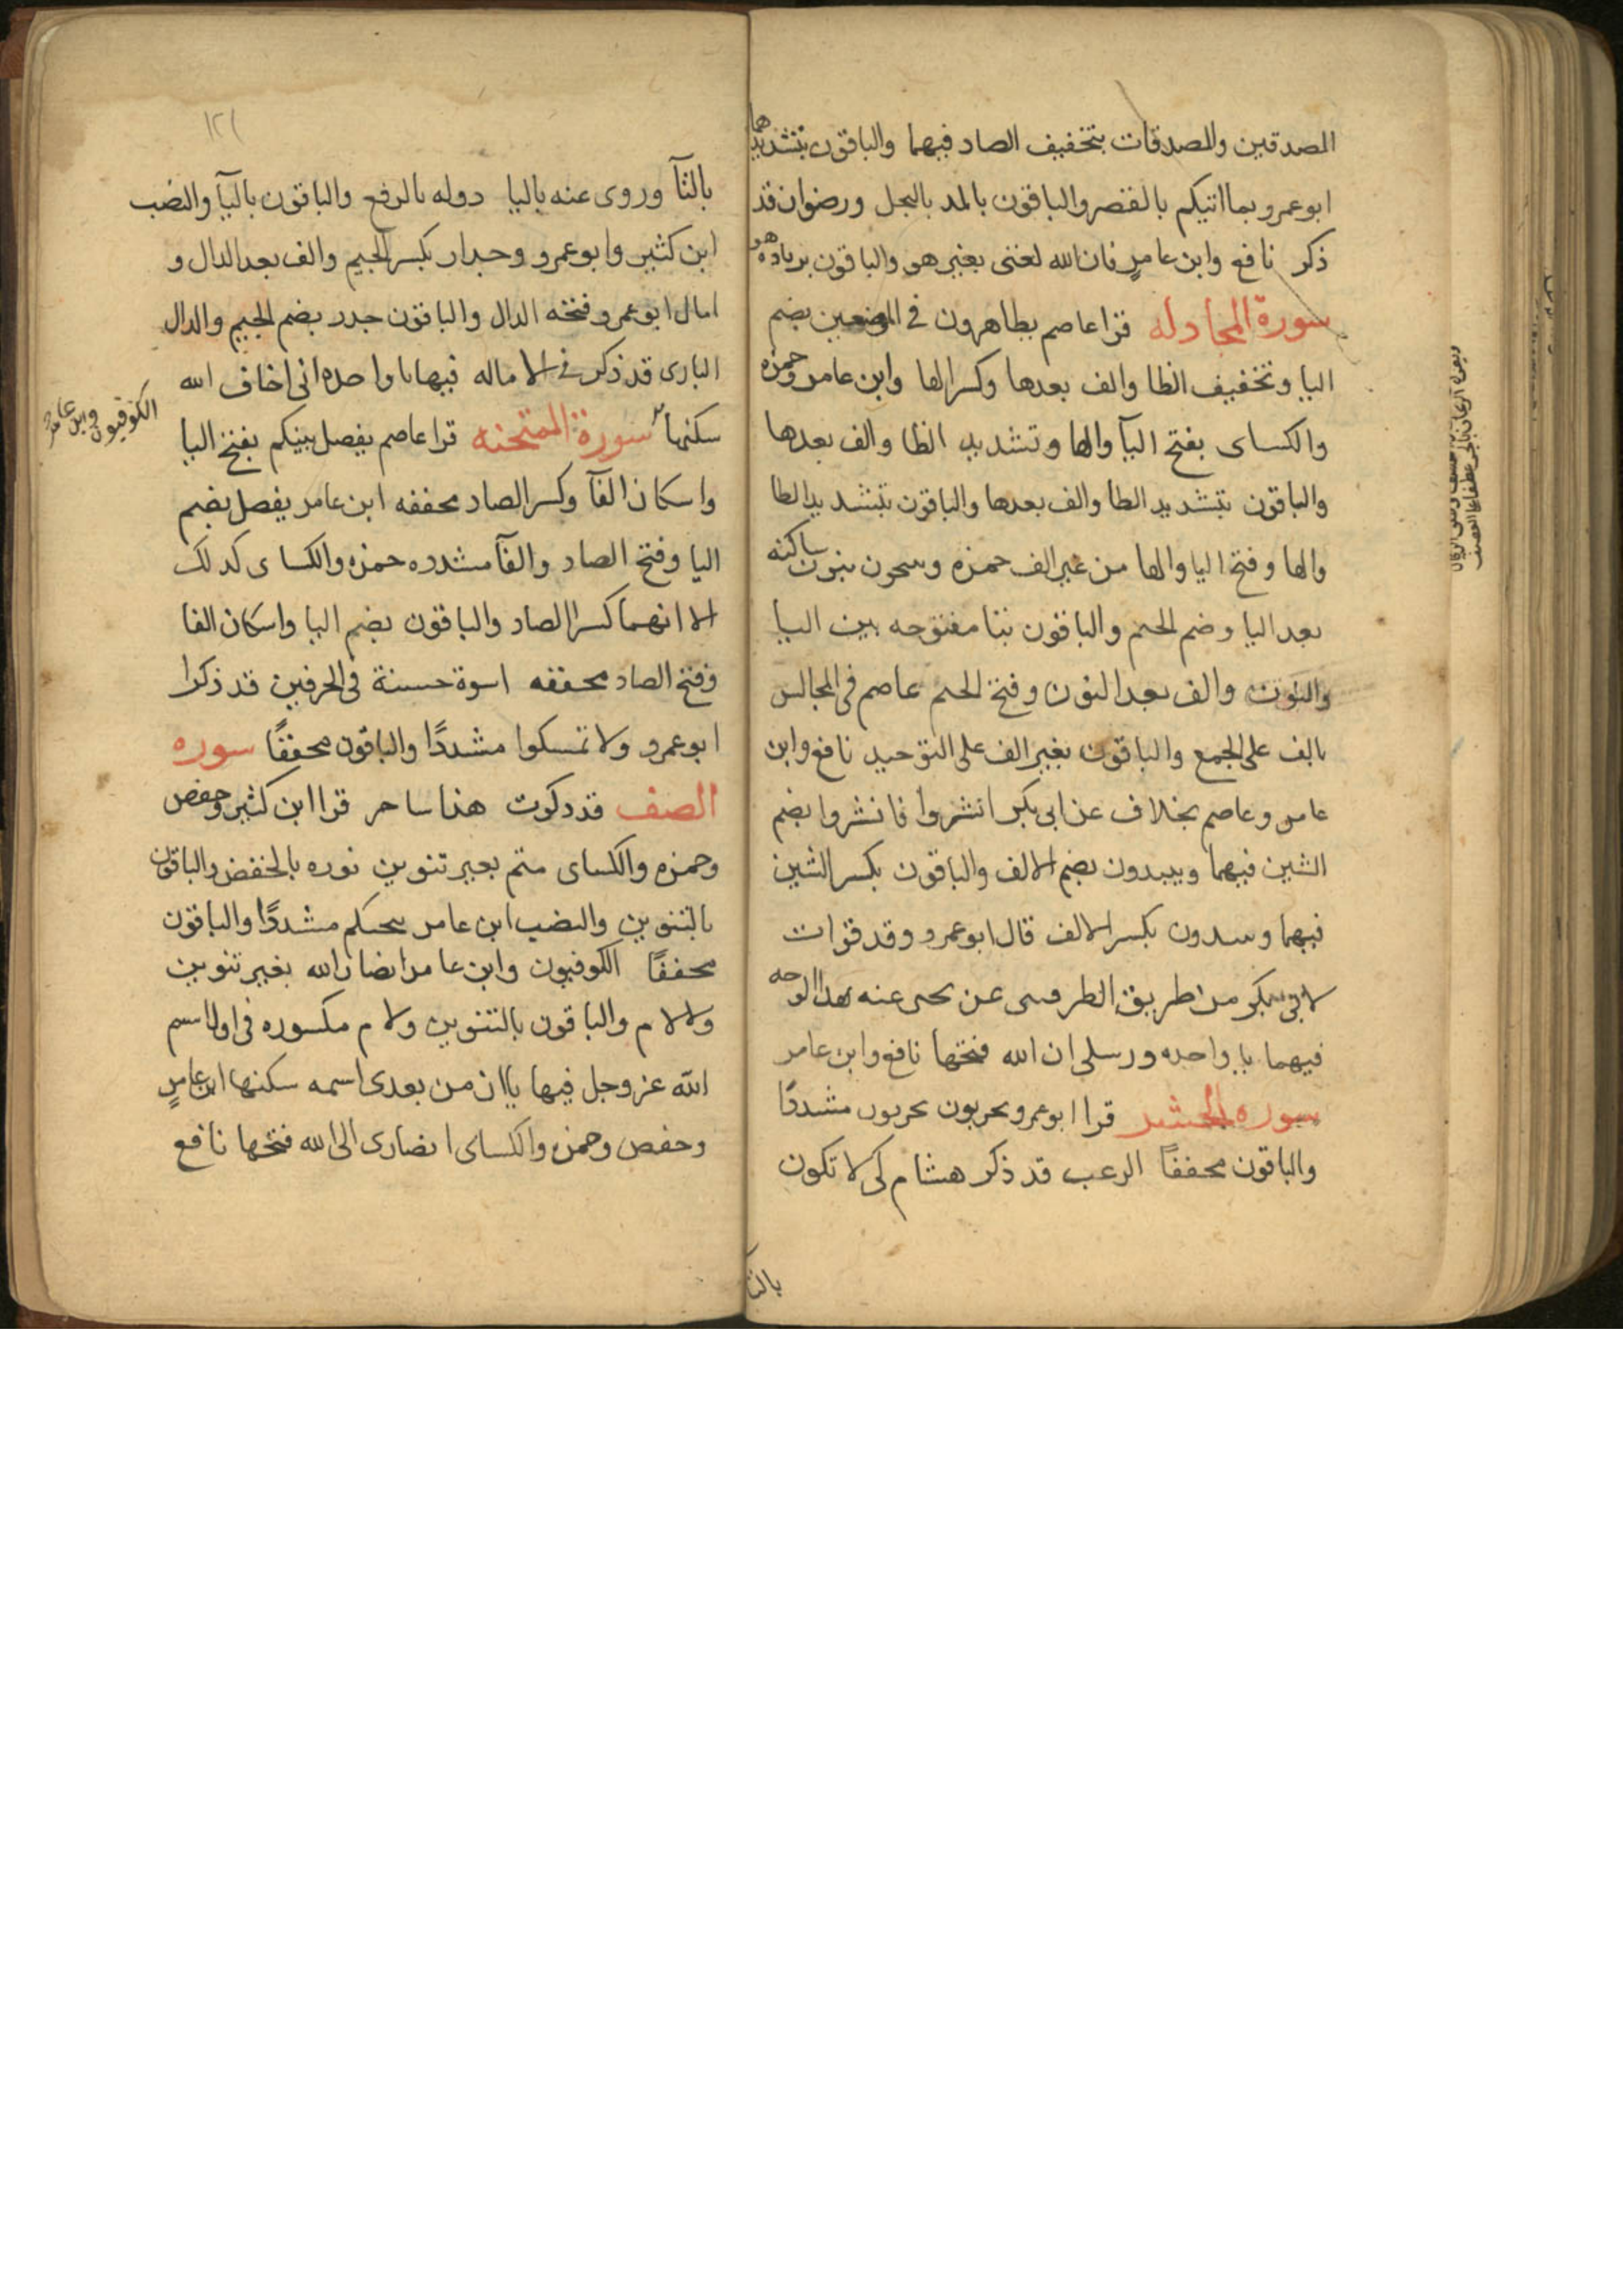 المصدقين والمصدقات بتخفيف الصاد فيهما والباقون بتشديدهما
ابو عمرو بما اتيكم بالقصر والباقون بالمد بالبخل ورضوان قد
ذكر نافع وابن عامرٍ فان الله لغنى بغير هو والباقون بزياده هو
سورة المجادله قرا عاصم يظاهرون في الموضعين بضم
اليا وتخفيف الظا والف بعدها وكسر الها وابن عامر وحمزه
والكساى بفتح اليآ والها وتشديد الظا والف بعدها
والباقون بتشديد الظا والف بعدها والباقون بتشديد الظا
والها وفتح اليا والها من غير الف حمزه وينتجون بنون ساكنه
بعد اليا وضم الجيم والباقون بتا مفتوحه بين اليا
والنون والف بعد النون وفتح الجيم عاصم فى المجالس
بالف على الجمع والباقون بغير الف على التوحيد نافع وابن
عامر وعاصم بخلاف عن ابى بكر انشزوا فانشزوا بضم
الشين فيهما ويبدون بضم الالف والباقون بكسر الشين
فيهما ويبدون بكسر الالف قال ابو عمرو وقد قرات
لابى بكر من طريق الصريفينى عن يحيى عنه بهذا الوجه
فيهما يا واحده ورسلى ان الله فتحها نافع وابن عامر
سوره الحشر قرا ابو عمرو يخربون يخربون مشددًا
والباقون مخففًا الرعب قد ذكر هشام كى لا تكون
بالتا
١٢١
بالتآ وروى عنه باليا دوله بالرفع والباقون باليآ والنصب
ابن كثير وابو عمرو وجدار بكسر الجيم والف بعد الدال و
امال ابو عمرو فتحه الدال والباقون جدر بضم الجيم والدال
البارى قد ذكر فى الاماله فيها يا واحده انى اخاف الله
سكنها الكوفيون وابن عامر سورة الممتحنه قرا عاصم يفصل بينكم بفتح اليا
واسكان الفآ وكسر الصاد مخففه ابن عامر يفصل بضم
اليا وفتح الصاد والفآ مشدده حمزه والكساى كذلك
الا انهما كسرا الصاد والباقون بضم اليا واسكان الفا
وفتح الصاد مخففه اسوة حسنة فى الحرفين قد ذكرا
ابو عمرو ولا تمسكوا مشددًا والباقون مخففًا سوره
الصف قد ذكرت هذا ساحر قرا ابن كثير وحفص
وحمزه والكساى متم بغير تنوين نوره بالخفض والباقون
بالتنوين والنصب ابن عامر تنجيكم مشددًا والباقون
مخففًا الكوفيون وابن عامر انصار الله بغير تنوين
ولا لام والباقون بالتنوين ولام مكسوره فى اول اسم
الله عز وجل فيها ياان من بعدى اسمه سكنها ابن عامرٍ
وحفص وحمزه والكساى انصارى الى الله فتحها نافع